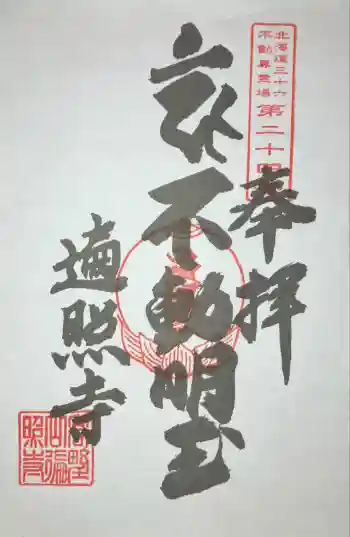 北海道三十六
不動尊霊場
第二十四
奉拝
不動明王
遍照寺